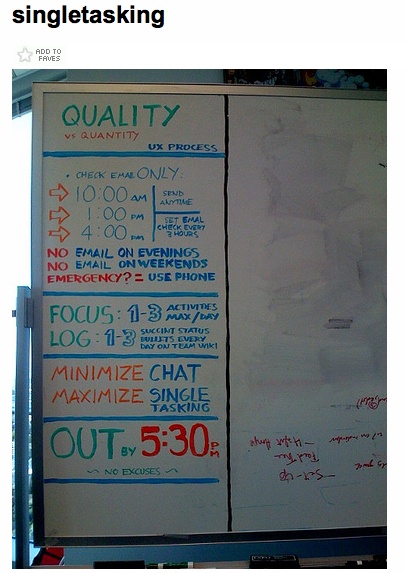 singletasking
ADD TO
FAVES
QUALITY
vs QUANTITY
UX PROCESS
• CHECK EMAIL ONLY:
10:00 AM
1:00 PM
4:00 PM
SEND
ANYTIME
SET EMAIL
CHECK EVERY
3 HOURS
NO EMAIL ON EVENINGS
NO EMAIL ON WEEKENDS
EMERGENCY? = USE PHONE
FOCUS: 1-3 ACTIVITIES
MAX/DAY
LOG: 1-3 SUCCINT STATUS
BULLETS EVERY
DAY ON TEAM WIKI
MINIMIZE CHAT
MAXIMIZE SINGLE
TASKING
OUT BY 5:30 PM
~ NO EXCUSES ~